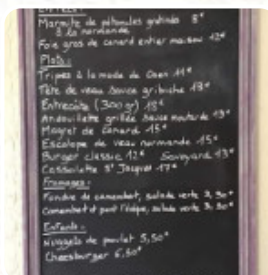 Marmite de pétoncles gratinés 8€
à la normande
Foie gras de canard entier maison 12€
Plats:
Tripes à la mode de Caen 11€
Tête de veau sauce gribiche 13€
Entrecôte (300 gr) 18€
Andouillette grillée sauce moutarde 13€
Magret de canard 15€
Escalope de veau normande 15€
Burger classic 12€ Savoyard 13€
Cassolette St Jacques 17€
Fromages:
Fondue de camembert, salade verte
Camembert et pont l'évêque, salade verte
Enfants:
Nuggets de poulet 5,50€
Cheesburger 6,50€